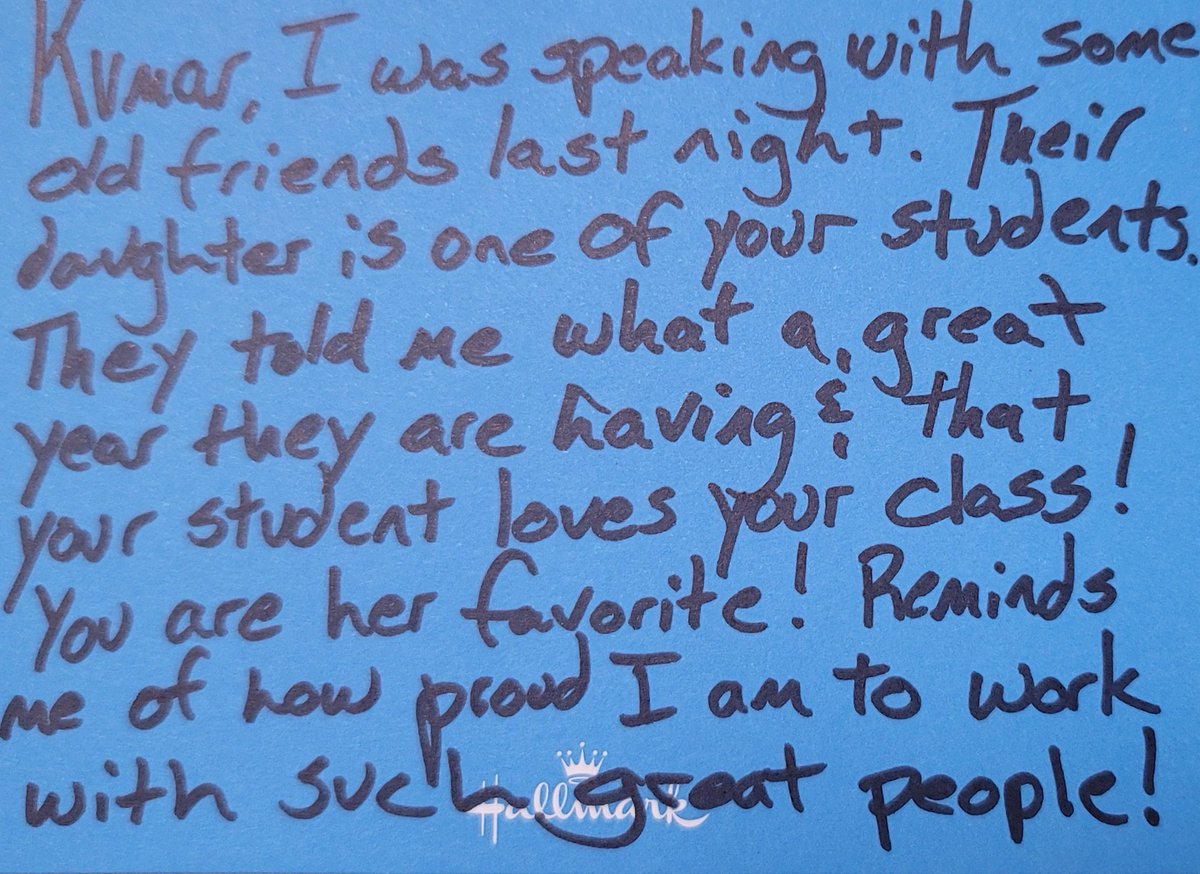 Kumar, I was speaking with some
old friends last night. Their
daughter is one of your students.
They told me what a great
year they are having & that
your student loves your class!
You are her favorite! Reminds
me of how proud I am to work
with such great people!
Hallmark